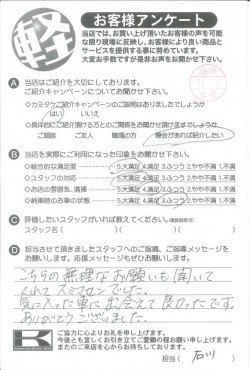 軽
お客様アンケート
当店では、お買い上げ頂いたお客様の声を可能
な限り現場に反映し、お客様により良い商品と
サービスを提供する事に努めています。
大変お手数ですが是非お声をお聞かせ下さい。
A 当店はご紹介を大切にしております。
ご紹介キャンペーンについてお聞かせ下さい。
◇カミタケご紹介キャンペーンのご説明はありましたでしょうか
はい いいえ
◇具体的にご紹介頂ける方とのご関係をお聞かせ頂けますでしょうか
ご親族 ご友人 職場の方 機会があれば紹介したい
B 当店を実際にご利用になった印象をお聞かせ下さい。
◇総合的な満足度 5.大満足 4.満足 3.ふつう 2.やや不満 1.不満
◇スタッフの対応 5.大満足 4.満足 3.ふつう 2.やや不満 1.不満
◇お店の雰囲気、清掃 5.大満足 4.満足 3.ふつう 2.やや不満 1.不満
◇納車時のお車の状態 5.大満足 4.満足 3.ふつう 2.やや不満 1.不満
C 評価したいスタッフがいれば教えてください。
スタッフ名( )( )( )
D 担当させて頂きましたスタッフへのご指摘、ご指導メッセージを
お願いします。応援メッセージもぜひお願い致します。
こちらの無理なお願いも聞いて
くれてスミマセンでした。
気に入った車に出会えて良かったです。
ありがとうございました。
K
ご協力に心よりお礼を申し上げます。
今後とも宜しくお引き立てご愛顧の程お願い申し上げます。
またのご来店を心からお待ちしております。
担当( 石川 )